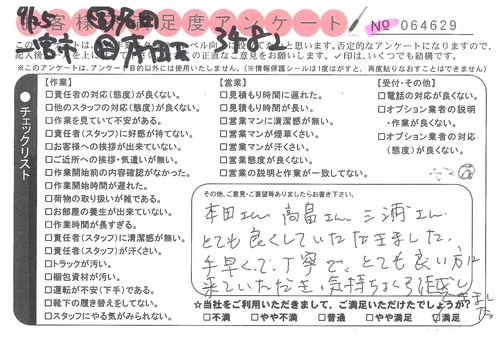 お客様満足度アンケート
№ 064629
9/25
一宮市
3482
※このアンケートは、アンケート目的以外には使用いたしません。（※情報保護シールは1度はがすと、再度貼りなおすことはできません）
チェックリスト
【作業】
□責任者の対応（態度）が良くない。
□他のスタッフの対応（態度）が良くない。
□作業を見ていて不安がある。
□責任者（スタッフ）に好感が持てない。
□お客様への挨拶が出来ていない。
□ご近所への挨拶・気遣いが無い。
□作業開始前の内容確認がなかった。
□作業開始時間が遅れた。
□荷物の取り扱いが雑である。
□お部屋の養生が出来ていない。
□作業時間が長すぎる。
□責任者（スタッフ）に清潔感が無い。
□責任者（スタッフ）が汗くさい。
□トラックが汚い。
□梱包資材が汚い。
□運転が不安（下手）である。
□靴下の履き替えをしてない。
□スタッフにやる気がみられない。
【営業】
□見積もり時間に遅れた。
□見積もり時間が長い。
□営業マンに清潔感が無い。
□営業マンが煙草くさい。
□営業マンが汗くさい。
□営業態度が良くない。
□営業の説明と作業が一致してない。
【受付・その他】
□電話の対応が良くない。
□オプション業者の説明
・作業が良くない。
□オプション業者の対応
（態度）が良くない。
その他、ご意見・ご要望等ありましたらお書き下さい。
本田さん 高畠さん 三浦さん
とても良くしていただきました。
手早くて、丁寧で、とても良い方に
来ていただき、気持ちよく引越し
できました
☆当社をご利用いただきまして、ご満足いただけたでしょうか？
□不満 □やや不満 □普通 □やや満足 □満足